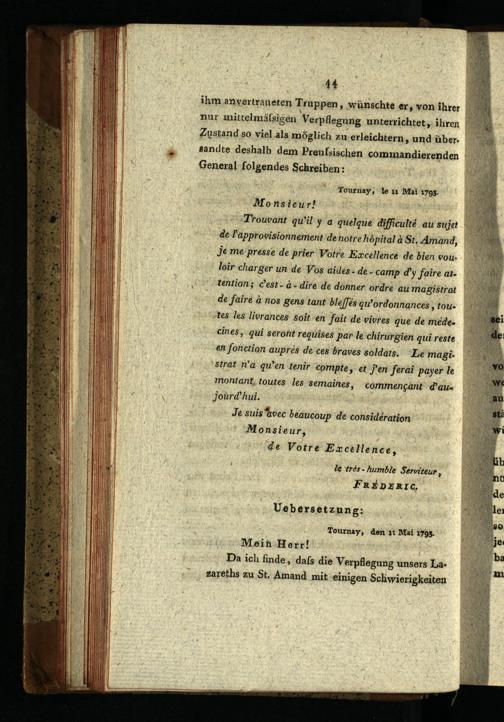 44
ihm anvertraneten Truppen, wünschte er, von ihrer
nur mittelmäſsigen Verpflegung unterrichtet, ihren
Zustand so viel als möglich zu erleichtern, und über-
sandte deshalb dem Preuſsischen commandierenden
General folgendes Schreiben:
Tournay, le 11 Mai 1793.
Monsieur!
Trouvant qu'il y a quelque difficulté au sujet
de l'approvisionnement de notre hôpital à St. Amand,
je me presse de prier Votre Excellence de bien vou-
loir charger un de Vos aides-de-camp d'y faire at-
tention; c'est-à-dire de donner ordre au magistrat
de faire à nos gens tant bleſſés qu'ordonnances, tou-
tes les livrances soit en fait de vivres que de méde-
cines, qui seront requises par le chirurgien qui reste
en fonction auprés de ces braves soldats. Le magi-
strat n'a qu'en tenir compte, et j'en ferai payer le
montant toutes les semaines, commençant d'au-
jourd'hui.
Je suis avec beaucoup de considération
Monsieur,
de Votre Excellence,
le trés-humble Serviteur,
FRÉDERIC.
Uebersetzung:
Tournay, den 11 Mai 1793.
Mein Herr!
Da ich finde, daſs die Verpflegung unsers La-
zareths zu St. Amand mit einigen Schwierigkeiten